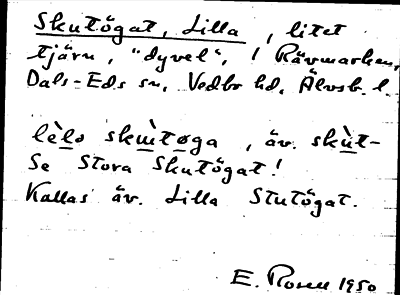 Skutögat, Lilla, litet
tjärn, "dyvel", i Rävmarken,
Dals-Eds sn, Vedbo hd, Älvsb. l.
lèlo skɯ̀tøga, äv. skùt-
Se Stora Skutögat!
Kallas äv. Lilla Stutögat.
E. Rosell 1950